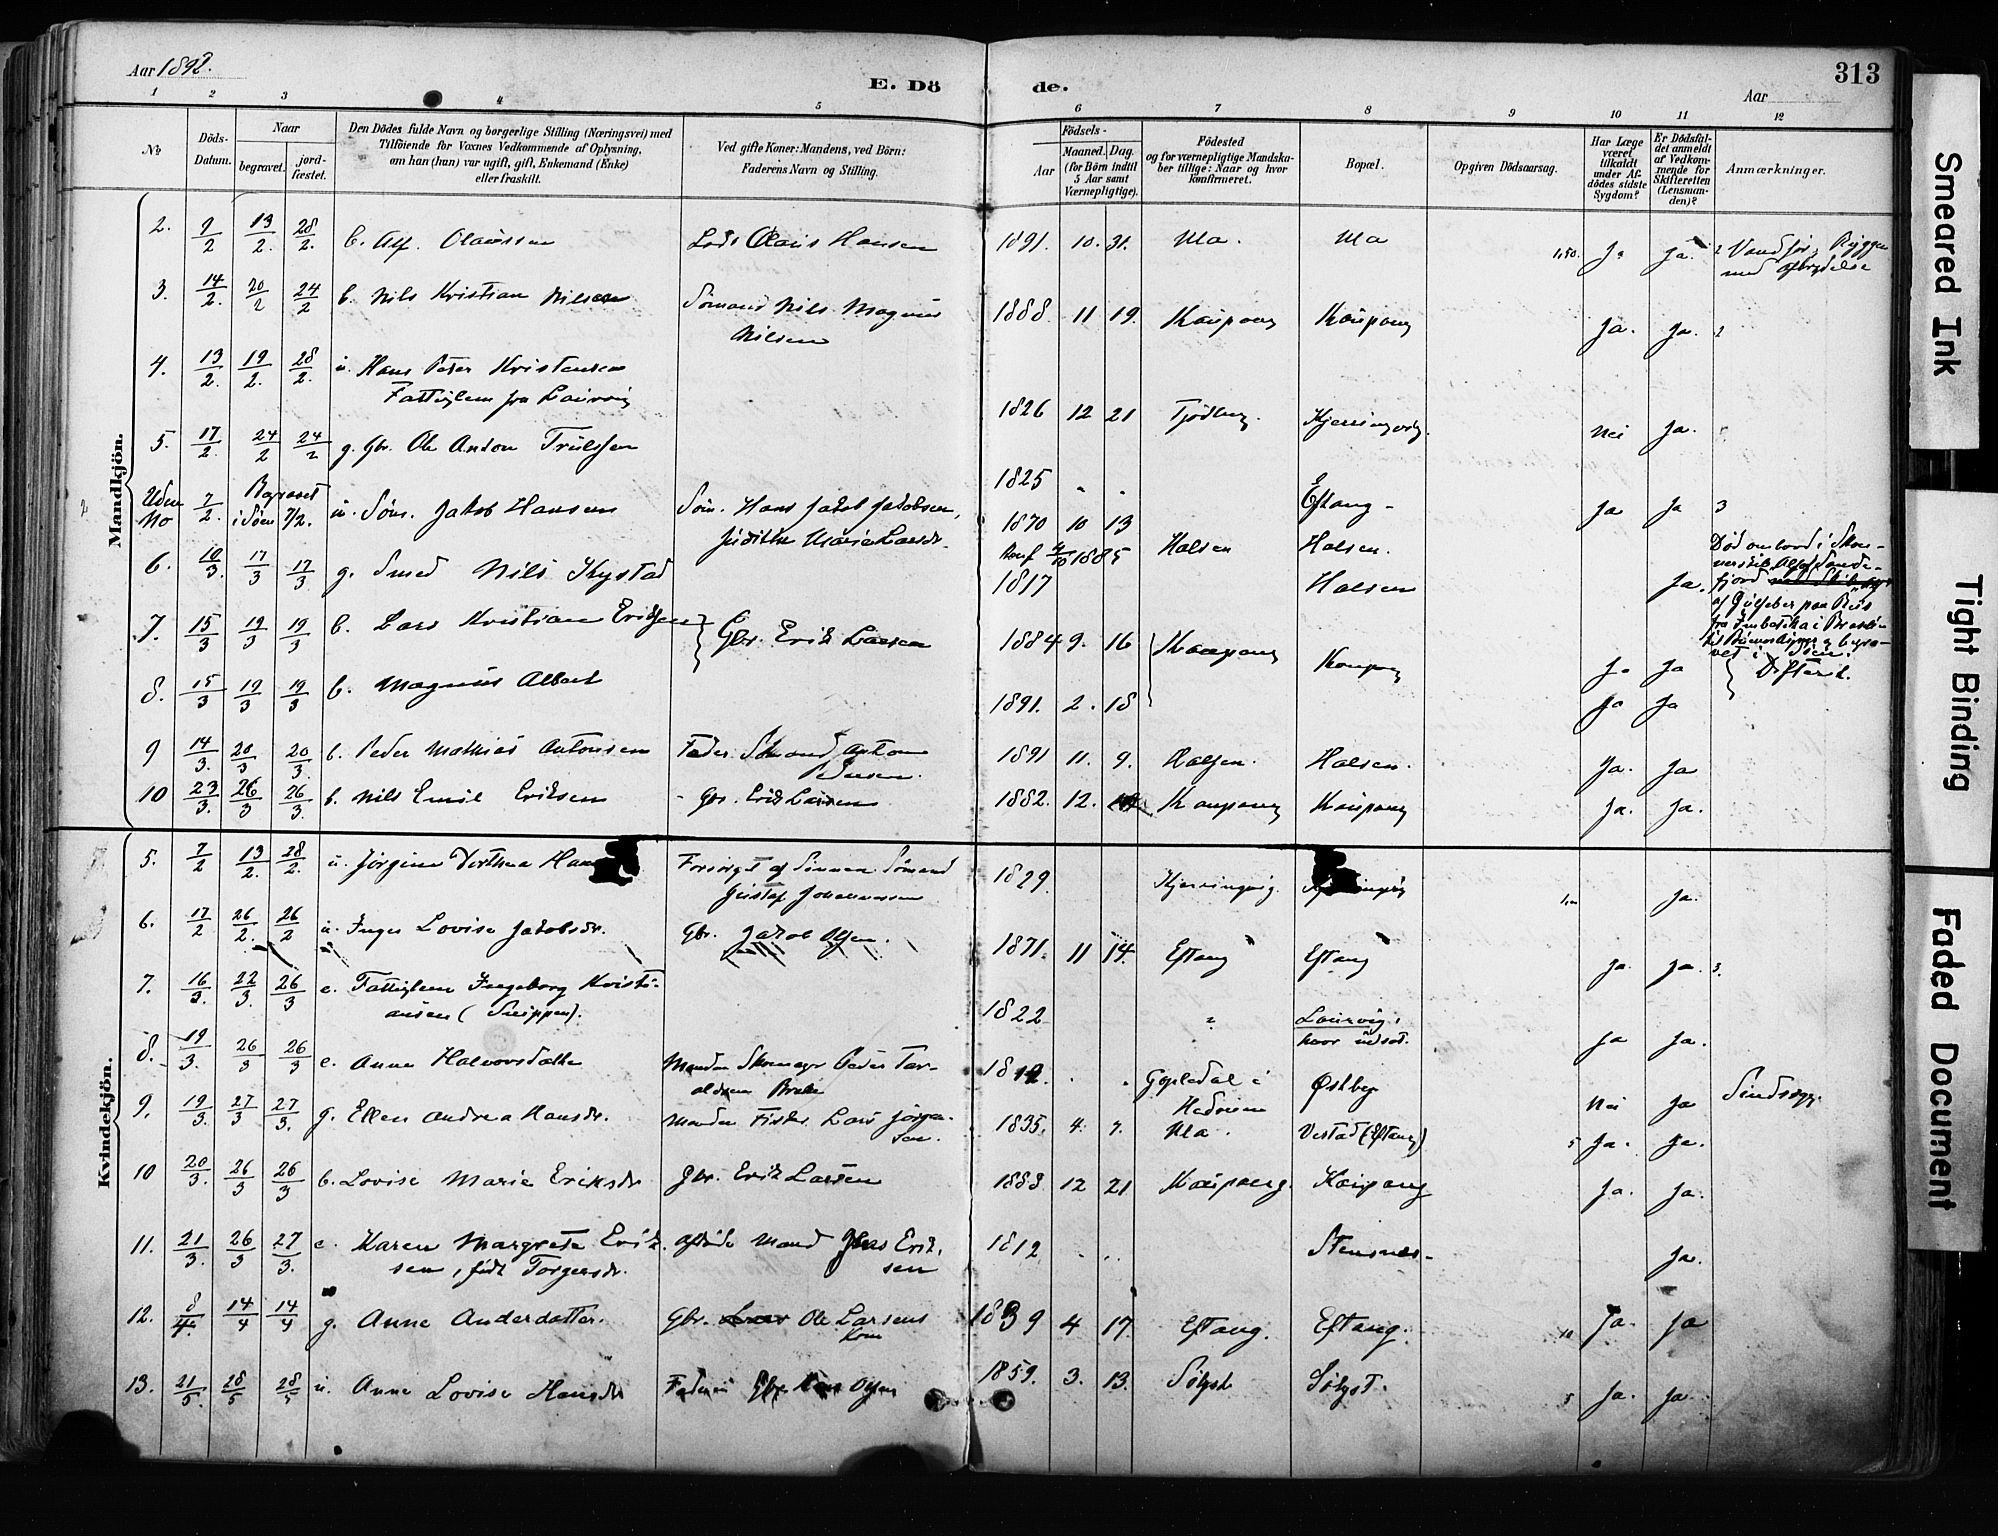 Aar 1892.
E. Dö
de.
Aar
313
1 2 3 4 5 6 7 8 9 10 11 12
No
Döds-Datum.
Naar
begravet.
jord-fæstet.
Den Dödes fulde Navn og borgerlige Stilling (Næringsvei) med
Tilföiende for Voxnes Vedkommende af Oplysning,
om han (hun) var ugift, gift, Enkemand (Enke)
eller fraskilt.
Ved gifte Koner: Mandens, ved Börn:
Faderens Navn og Stilling.
Födsels-
Aar
Maaned. Dag.
(for Börn indtil
5 Aar samt
Værnepligtige).
Födested
og for værnepligtige Mandska-
ber tillige: Naar og hvor
konfirmeret.
Bopæl.
Opgiven Dödsaarsag.
Har Læge
været
tilkaldt
under Af-
dödes sidste
Sygdom?
Er Dödsfal-
det anmeldt
af Vedkom-
mende for
Skifteretten
(Lensman-
den)?
Anmærkninger.
Mandkjön.
2. 9/2 13/2. 28/2. b. Alf. Olaussen Lods Olaus Hansen 1891. 10. 31. Ula. Ula 1,50. Ja Ja. Vandfør, Ryggen
med afbrydelse
3. 14/2. 20/2 24/2 b. Nils Kristian Nilsen Sømand Nils Magnus
Nilsen 1888. 11 19. Kaupang Kaupang Ja. Ja. 2
4. 13/2. 19/2. 28/2. u. Hans Peter Kristensen
Fattiglem fra Laurvig 1826 12 21 Tjødling. Kjerringvig. Nei Ja.
5. 17/2. 24/2 24/2 g. Gbr. Ole Anton Trulssen 1825 . . Eftang - Ja Ja 3
Uden
No 7/2. Begravet
i Søen 7/2. u. Søm. Jakob Hansen Søm. Hans Jakob Jakobsen,
Judithe Marie Larsdr. 1870 10 13
Konf 4/10 1885 Halsen Halsen. Død ombord i Skon-
nerskib Alf af Sande-
fjord
af Gulfeber paa Reis
6. 10/3. 17/3 17/3 g. Smed Nils Kystad 1817 Halsen Ja.
7. 15/3 19/3 19/3 b. Lars Kristian Eriksen } Gbr. Erik Larsen 1884 9. 16 Kaupang Kaupang Ja Ja } Difterit.
8. 15/3 19/3 19/3 b. Magnus Albert 1891. 2. 18 Ja Ja
9 14/3. 20/3 20/3. b. Peder Mathias Antonsen Fader. Sømand Anton
Pedersen. 1891 11. 9. Halsen. Halsen. Ja. Ja
10 23/3. 26/3 26/3 b. Nils Emil Eriksen - Gbr. Erik Larsen 1882. 12. Kaupang Kaupang Ja. Ja.
Kvindekjön.
5. 7/2 13/2. 28/2. u. Jørgine Dorthea Han Forsørget af Sønnen Sømand
Gustaf Johannessen 1829. Kjerringvig. Ja.
6. 17/2 26/2. 26/2 u. Inger Lovise Jakobsdr. Gbr. Jakob Olsen. 1871. 11 14. Eftang Eftang Ja. Ja. 3.
7. 16/3. 22/3. 26/3 e. Fattiglem Ingeborg Kristi-
ansen (Snippen). 1822 " Laurvig,
hvor udsat. Ja Ja.
8. 19/3. 26/3 26/3 e. Anne Halvorsdatter Manden Skomager Peder Tar-
aldsen 1812. . . Gopledal i
Hedrum Østby Nei Ja Sindssyg.
9. 19/3. 27/3 27/3. g. Ellen Andrea Hansdr. Manden Fisker Lars Jørgen-
sen. 1835. 4. 7. Ula. Vestad (Eftang) 5 Ja. Ja.
10 20/3. 26/3 26/3 b. Lovise Marie Eriksdr Gbr. Erik Larsen 1883 12 21 Kaupang. Kaupang Ja. Ja.
11. 21/3. 26/3 27/3. e. Karen Margrete Erik-
sen, født Torgersdr. afdøde Mand Erik-
sen 1812 . .. Stensnes. Ja.
12. 8/4. 14/4 14/4 g. Anne Andersdatter. Gbr. Ole Larsens
Kone 1839 4 17 Eftang. Eftang. 10 Ja. Ja
13. 21/5. 28/5 28/5 u. Anne Lovise Hansdr Faderen Gbr. Olsen 1859. 3. 13. Sølyst Sølyst. 5 Ja. Ja.
Smeared Ink
Tight Binding
Faded Document